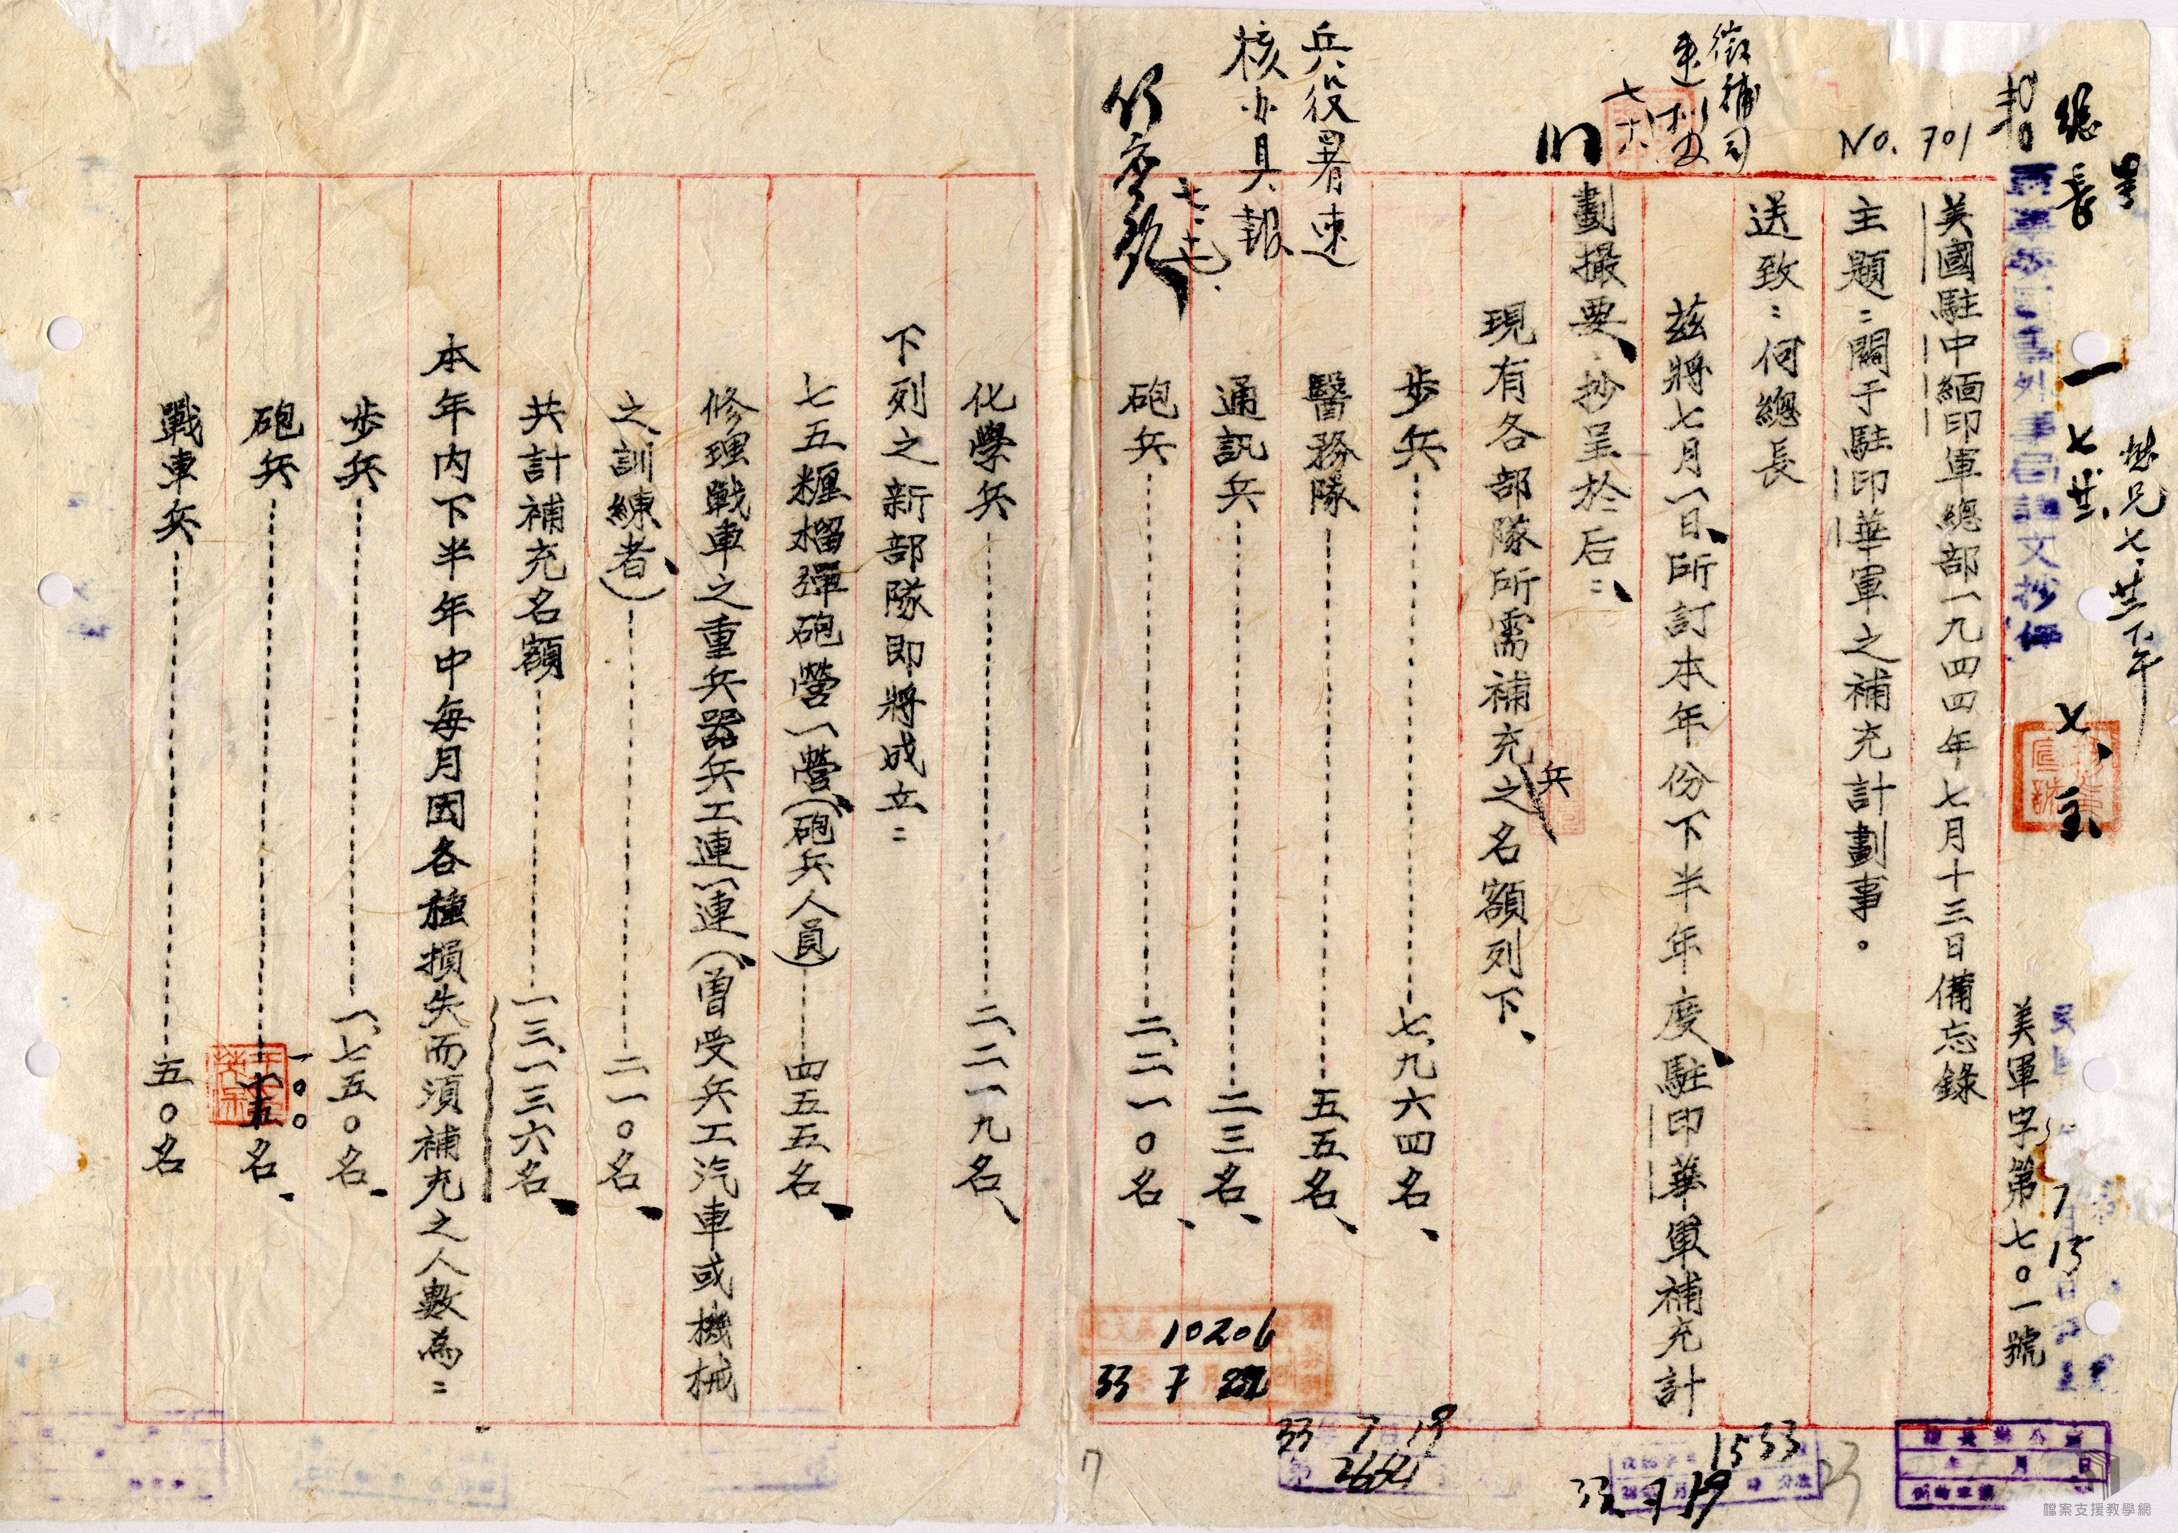 呈
總長
No. 701
軍事委員會外事局譯文抄件
美軍字第七〇一號
美國駐中緬印軍總部一九四四年七月十三日備忘錄
主題：關于駐印華軍之補充計劃事。
送致：何總長
茲將七月一日所訂本年份下半年度駐印華軍補充計
劃撮要抄呈於后：
現有各部隊所需補充之名額列下、
兵
步兵………七、九六四名、
醫務隊………五五名、
通訊兵………二三名、
砲兵………二、二一〇名、
化學兵………二、二一九名、
下列之新部隊即將成立：
七五糎榴彈砲營一營（砲兵人員）………四五五名、
修理戰車之重兵器兵工連一連（曾受兵工汽車或機械
之訓練者）………二一〇名、
共計補充名額………一三、一三六名、
本年內下半年中每月因各種損失而須補充之人數為：
步兵………一、七五〇名、
砲兵………一〇〇名、
戰車兵………五〇名
徵補司
速
兵役署速
核办具報
10206
33 7 22
33 7 19
2664
1533
33 7 19
23
7
檔案支援教學網